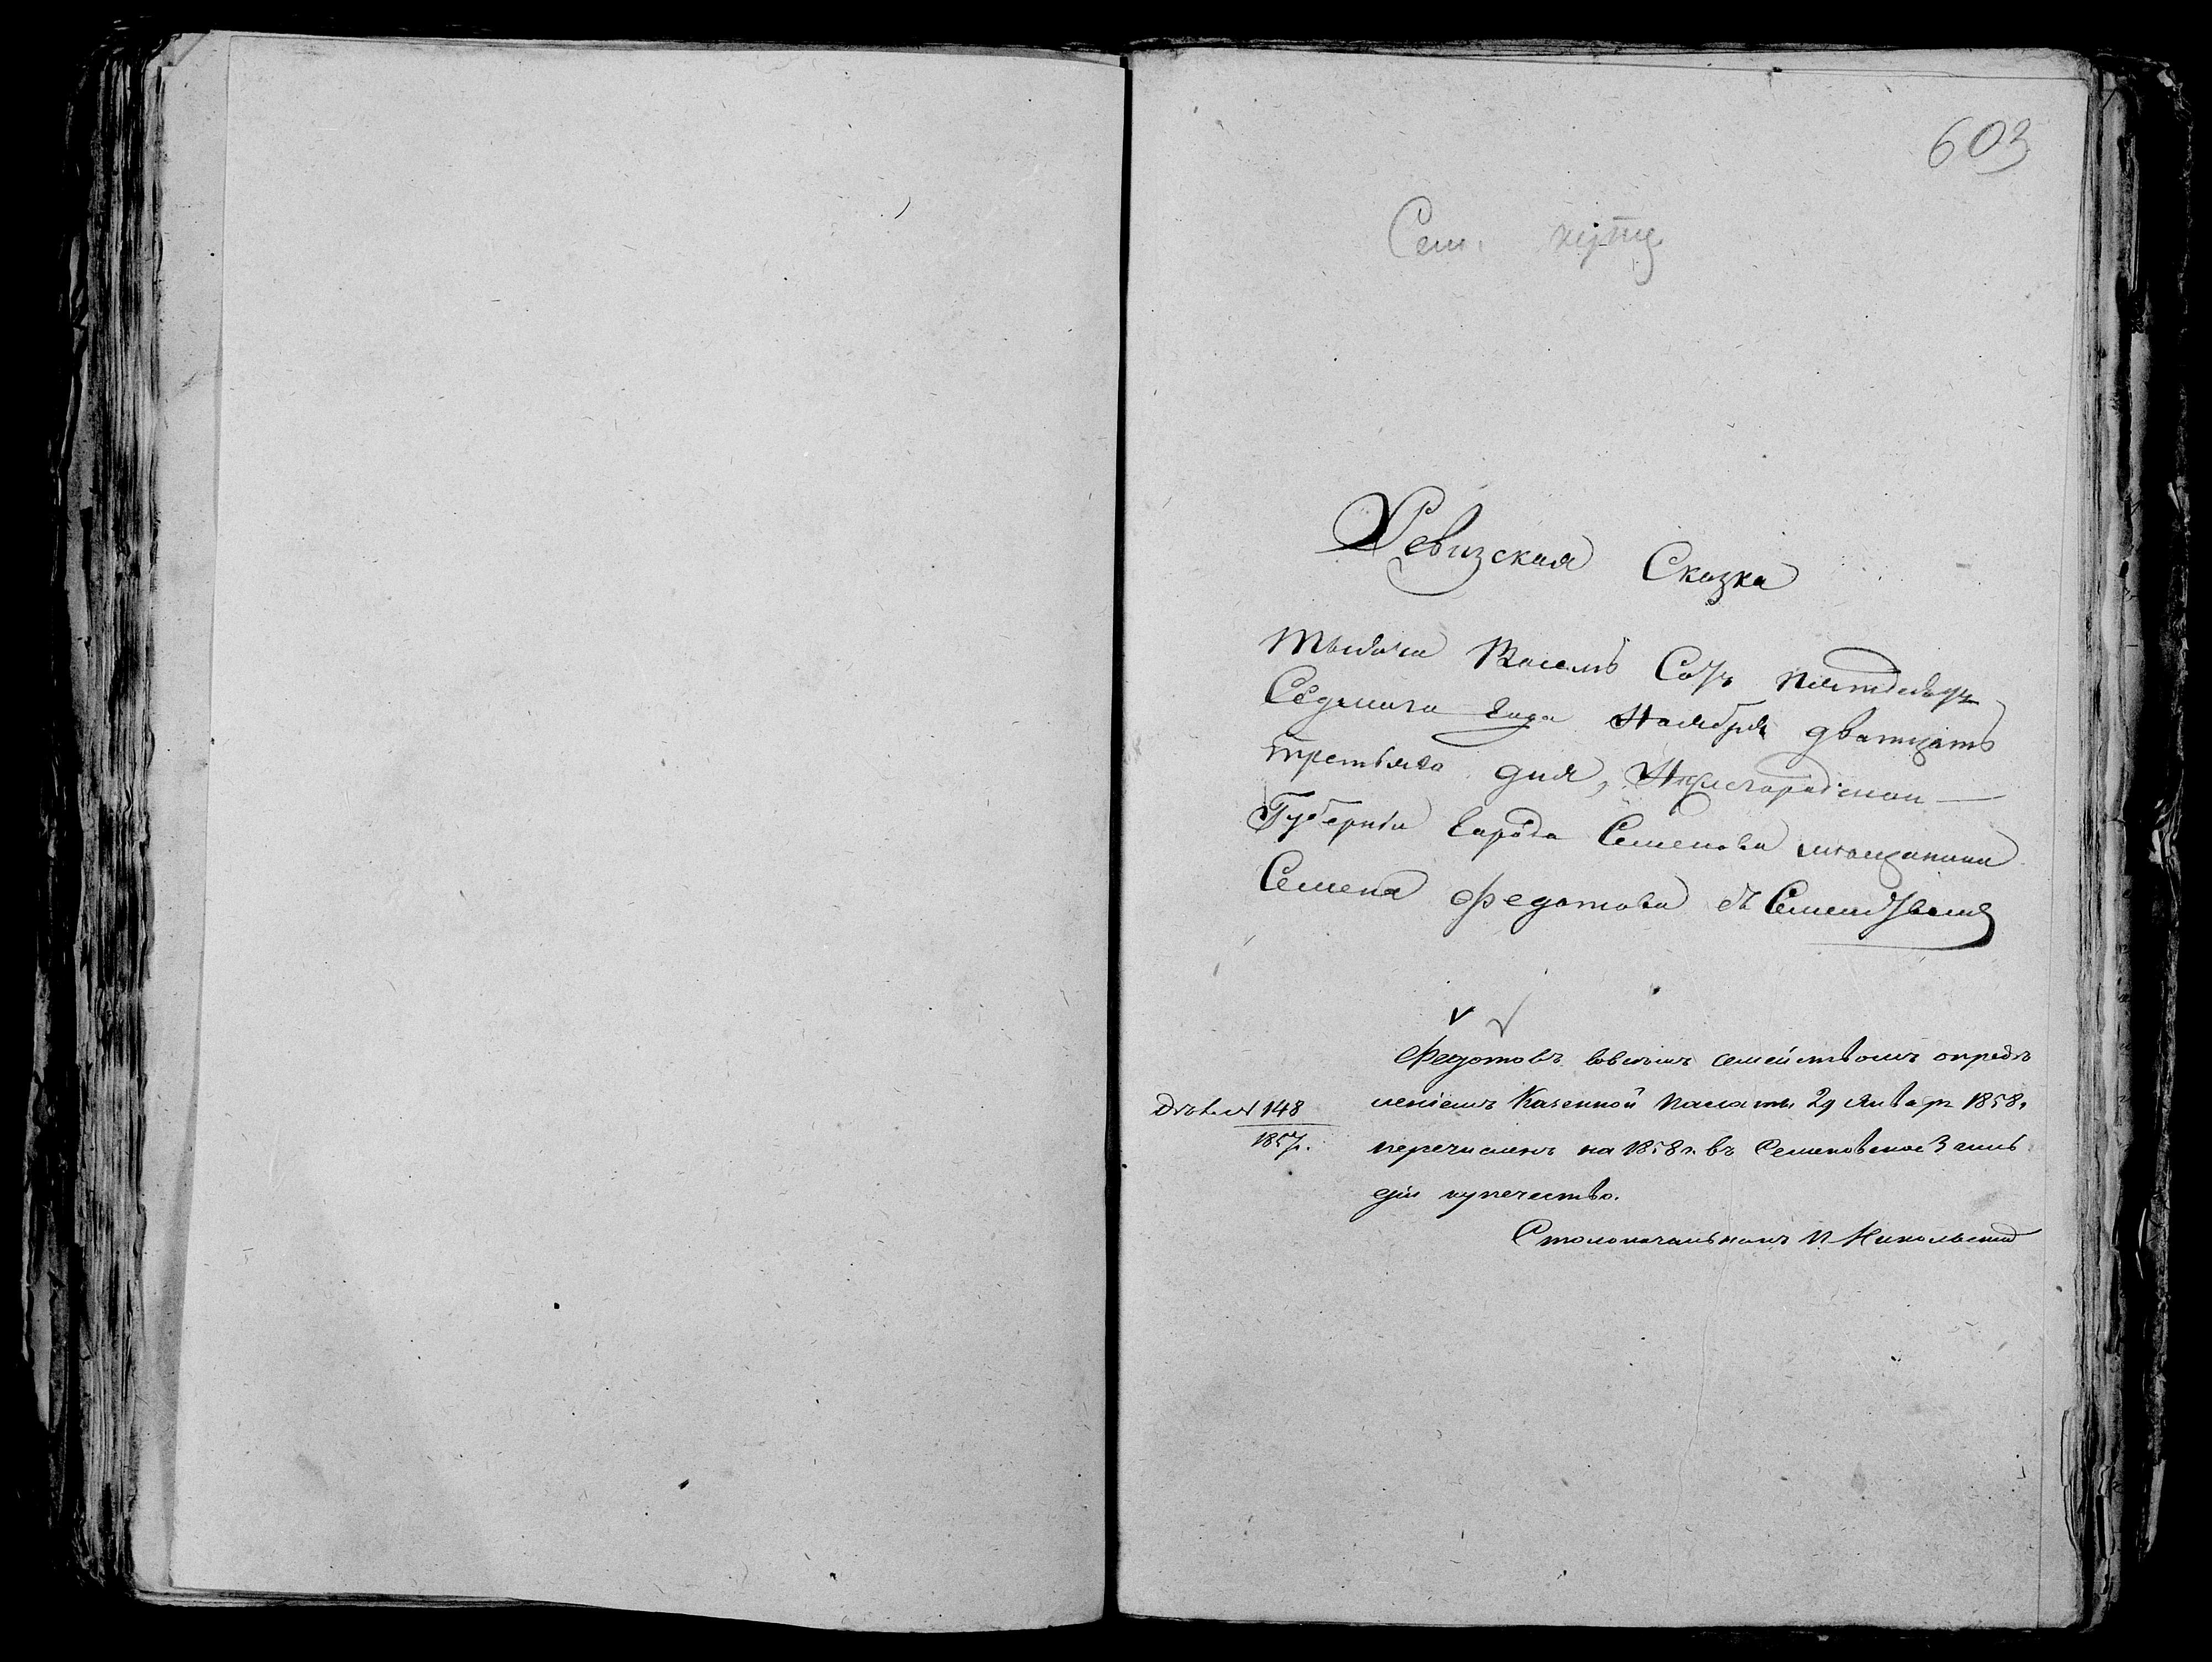 603
Сем. купц
Ревизская Сказка
Тысяча Восемь Сотъ пятдесятъ
Седьмаго Года Ноября дватцать
третьяго дня, Нижегородской
Губерніи Города Семенова мѣщанина
Семена Федотова съ Семействомъ
Федотовъ совсѣмъ семействомъ опредѣ
леніемъ Казенной Палаты 29 Января 1858.
перечисленъ на 1858 г. въ Семеновское 3 гиль
діи купечество.
Столоначальникъ Никольскій
Дѣло № 148
1857.